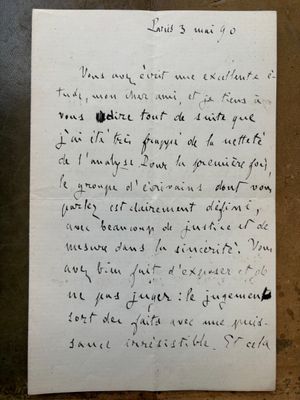 Paris 3 mai 90
Vous avez écrit une excellente é-
tude, mon cher ami, et je tiens à
vous dire tout de suite que
j'ai été très frappé de la netteté
de l'analyse. Pour la première fois,
le groupe d'écrivains dont vous
parlez est clairement défini,
avec beaucoup de justice et de
mesure dans la sincérité. Vous
avez bien fait d'exposer et de
ne pas juger : le jugement
sort des faits avec une puis-
sance irrésistible. Et cela